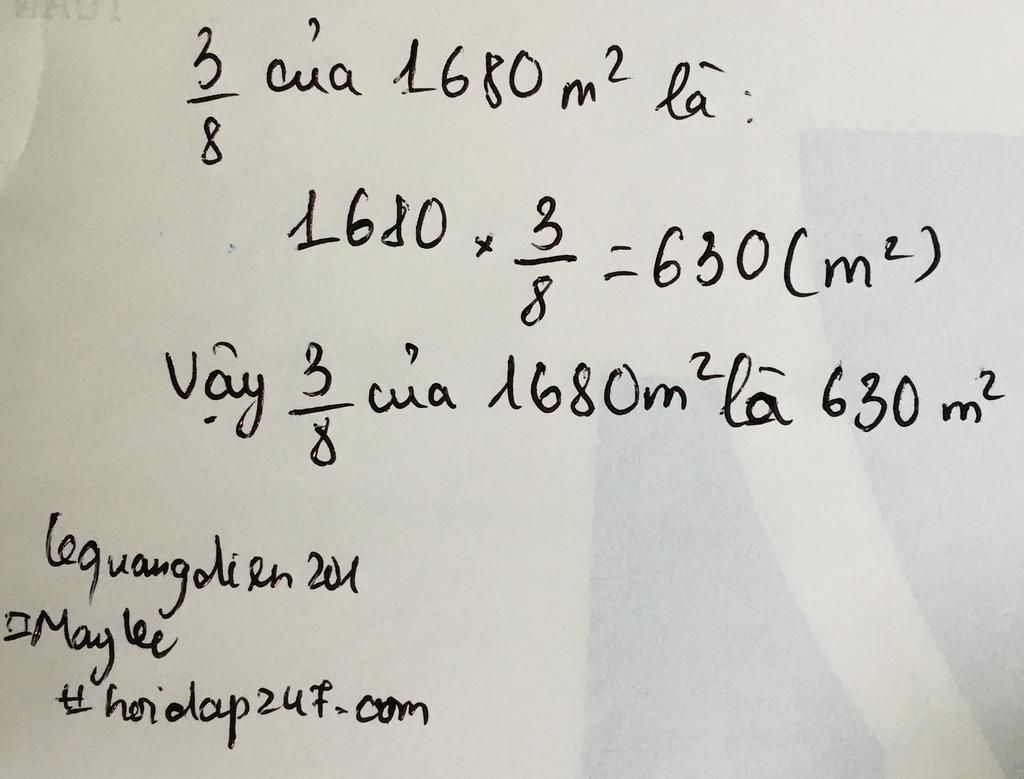 3/8 của 1680 m² là:
1680 × 3/8 = 630 (m²)
Vậy 3/8 của 1680m² là 630 m²
lequangdien201
May
#hoidap247.com